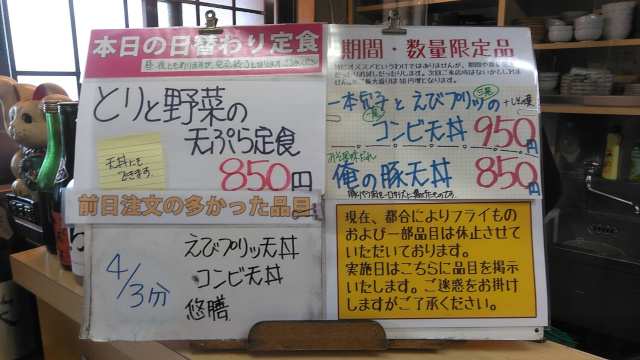 本日の日替わり定食
昼夜ともありますが、完売終了もあります。ごめんなさい
とりと野菜の
天ぷら定食
天丼にも
できます。
850円
前日注文の多かった品目
4/3分
えびプリッ天丼
コンビ天丼
悠膳
期間・数量限定品
一本穴子とえびプリッの
コンビ天丼 950円
みそ風味だれ
俺の豚天丼 850円
現在、都合によりフライもの
および一部品目は休止させて
いただいております。
実施日はこちらに品目を掲示
いたします。ご迷惑をお掛け
しますがご了承ください。